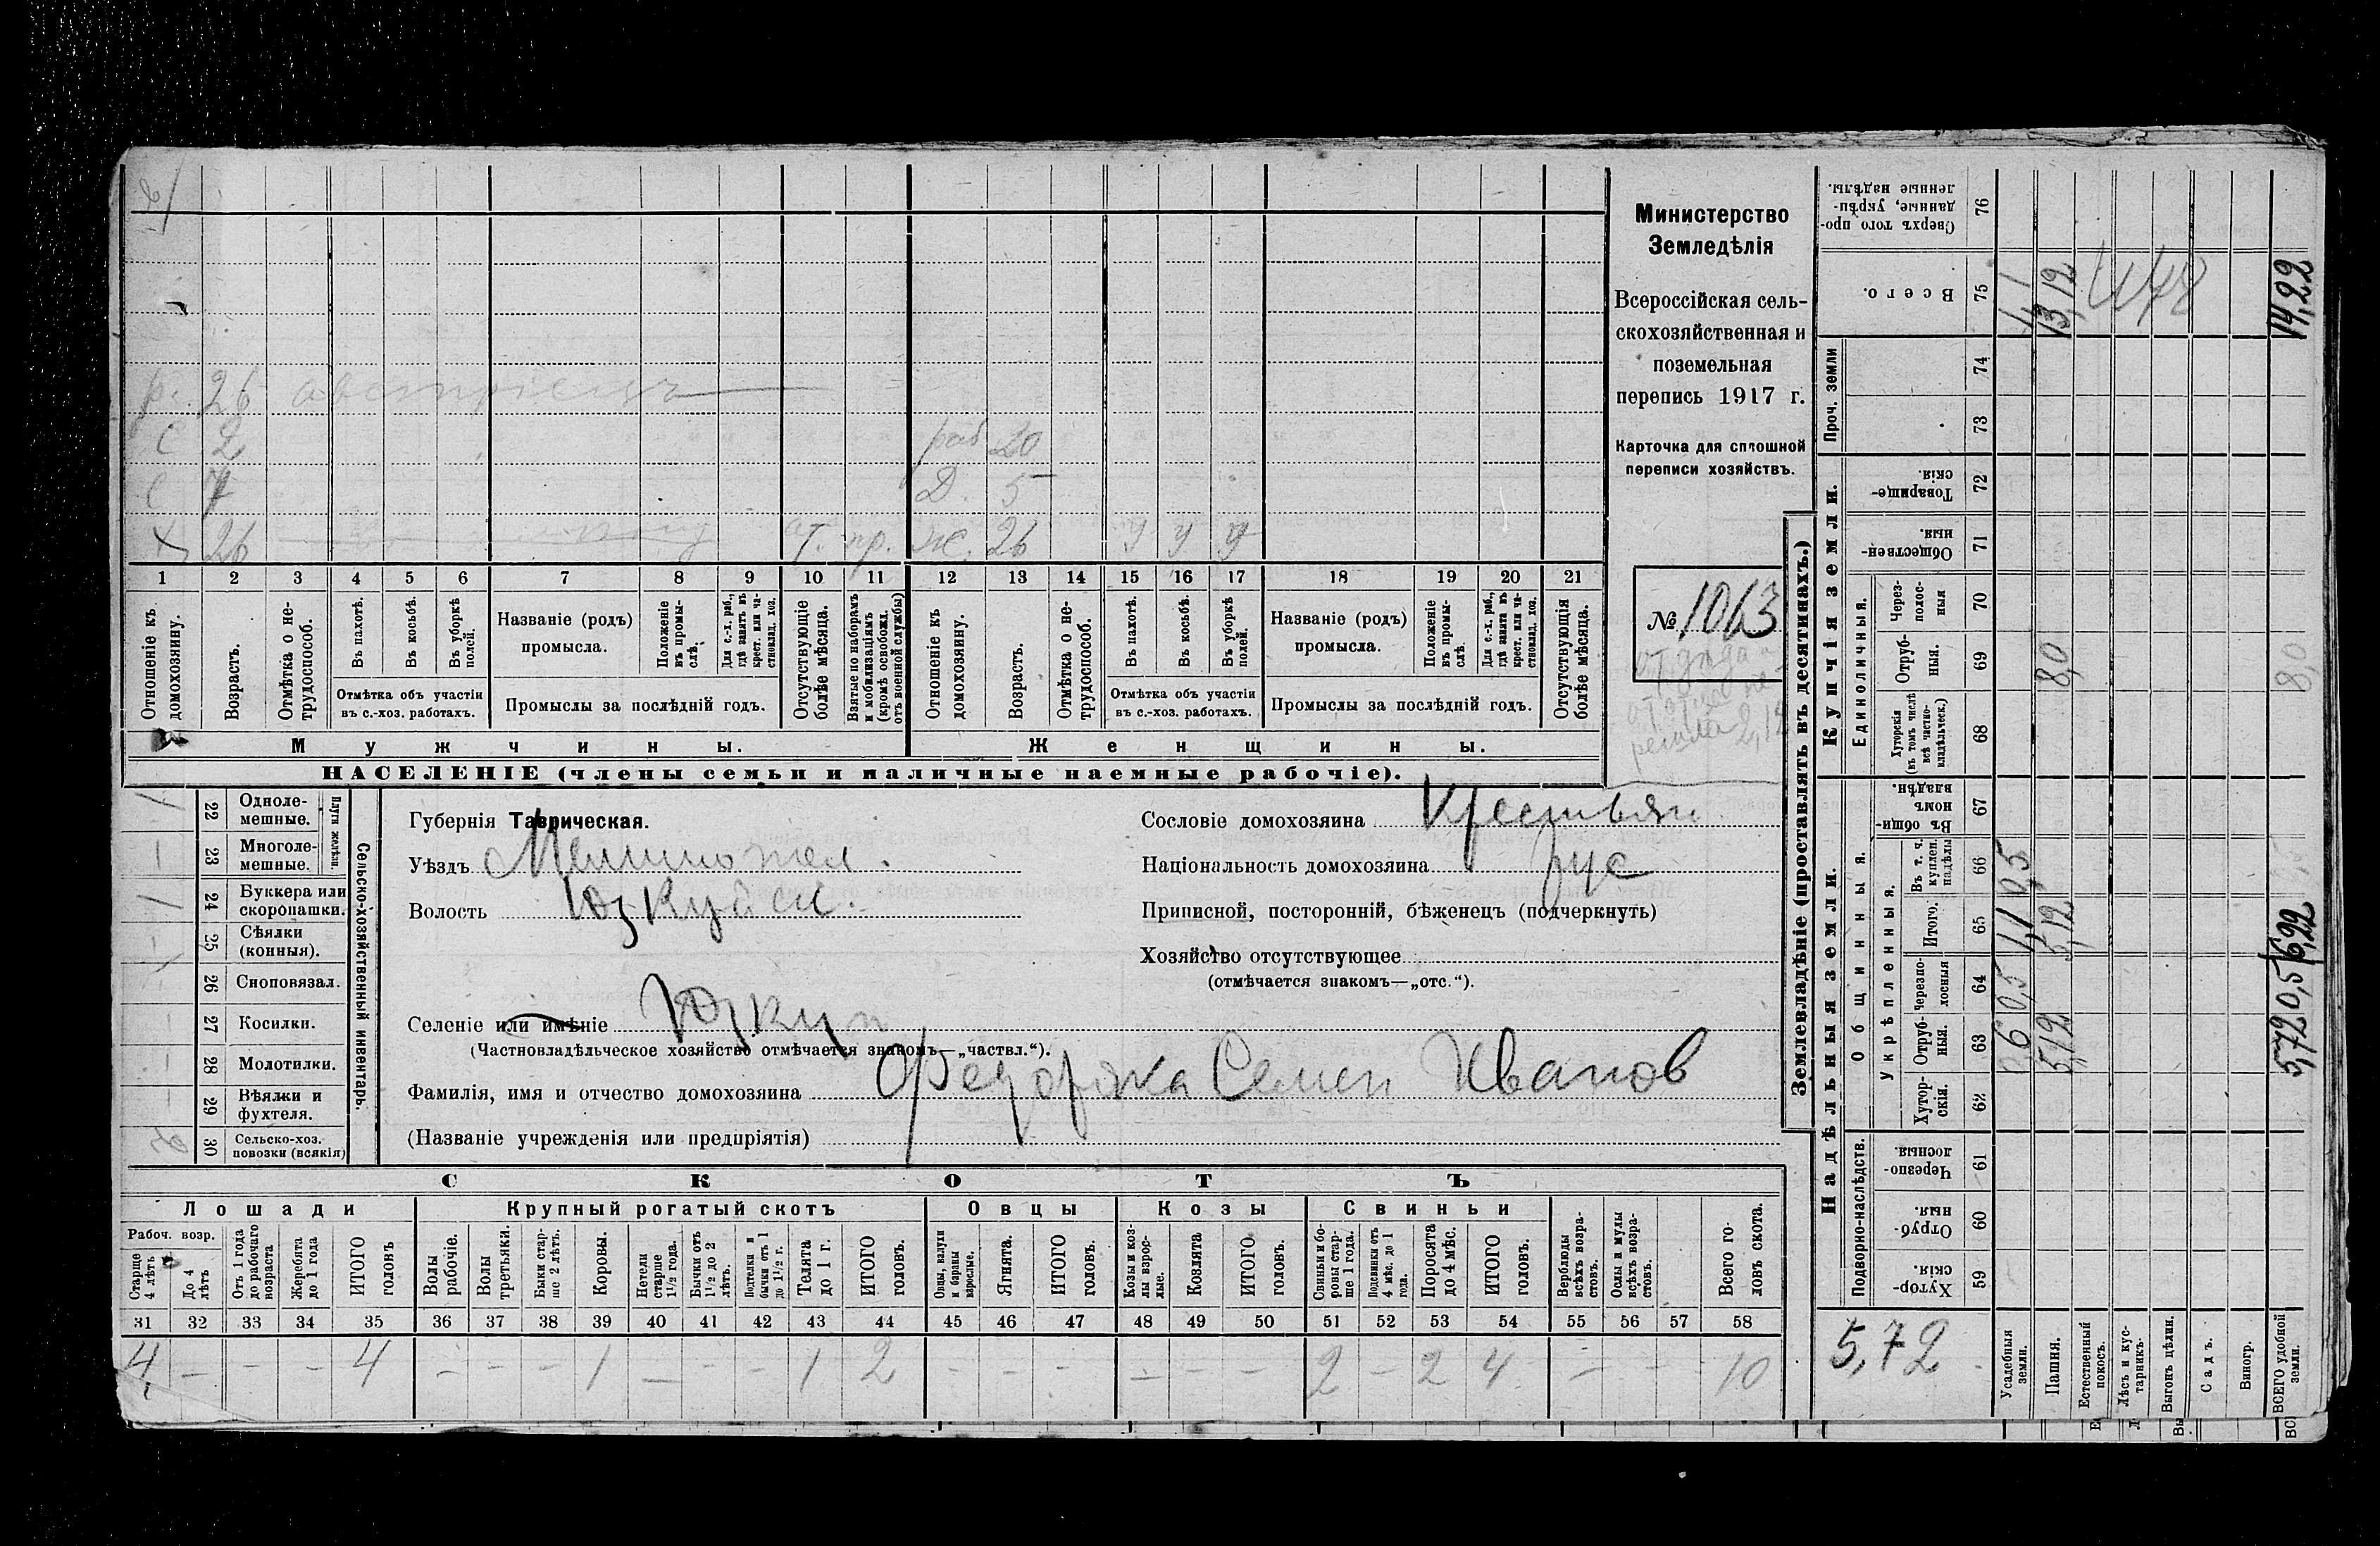 р. 26 австріецъ
С 2 раб 20
С 7 Д. 5
Х 26 от. пр. ж. 26 у у у
1 2 3 4 5 6 7 8 9 10 11 12 13 14 15 16 17 18 19 20 21
Отношеніе къ домохозяину.
Возрастъ.
Отмѣтка о нетрудоспособ.
Въ пахотѣ.
Въ косьбѣ.
Въ уборкѣ полей.
Отмѣтка объ участіи въ с.-хоз. работахъ.
Названіе (родъ) промысла.
Положеніе въ промыслѣ.
Для с.-х. раб., гдѣ занятъ въ крест. или частновлад. хоз.
Промыслы за послѣдній годъ.
Отсутствующіе болѣе мѣсяца.
Взятые по наборамъ и мобилизаціямъ (кромѣ освобожд. отъ военной службы)
Отношеніе къ домохозяину.
Возрастъ.
Отмѣтка о нетрудоспособ.
Въ пахотѣ.
Въ косьбѣ.
Въ уборкѣ полей.
Отмѣтка объ участіи въ с.-хоз. работахъ.
Названіе (родъ) промысла.
Положеніе въ промыслѣ.
Для с.-х. раб., гдѣ занята въ крест. или частновлад. хоз.
Промыслы за послѣдній годъ.
Отсутствующія болѣе мѣсяца.
Мужчины.
Женщины.
НАСЕЛЕНІЕ (члены семьи и наличные наемные рабочіе).
Министерство
Земледѣлія
Всероссійская сель-
скохозяйственная и
поземельная
перепись 1917 г.
Карточка для сплошной
переписи хозяйствъ.
№ 1063
от дѣда
2,12
22 Одноле-мешные.
23 Многоле-мешные.
Плуги желѣзн.
24 Буккера или скоропашки.
25 Сѣялки (конныя).
26 Сноповязал.
27 Косилки.
28 Молотилки.
29 Вѣялки и фухтеля.
30 Сельско-хоз. повозки (всякія)
Сельско-хозяйственный инвентарь.
Губернія Таврическая.
Уѣздъ Мелитопол.
Волость Юзкуйск.
Селеніе или имѣніе Юзкуи
(Частновладѣльческое хозяйство отмѣчается знакомъ—„частвл.“).
Фамилія, имя и отчество домохозяина Федоряка Семен Иванов
(Названіе учрежденія или предпріятія)
Сословіе домохозяина Крестьян
Національность домохозяина рус
Приписной, посторонній, бѣженецъ (подчеркнуть)
Хозяйство отсутствующее
(отмѣчается знакомъ—„отс.“).
СКОТЪ
Лошади
Крупный рогатый скотъ
Овцы
Козы
Свиньи
Рабоч. возр.
Старше 4 лѣтъ
До 4 лѣтъ
Отъ 1 года до рабочаго возраста
Жеребята до 1 года
ИТОГО головъ
Волы рабочіе.
Волы третьяки.
Быки старше 2 лѣтъ.
Коровы.
Нетели старше 1½ года.
Бычки отъ 1½ до 2 лѣтъ.
Подтелки и бычки отъ 1 до 1½ г.
Телята до 1 г.
ИТОГО головъ.
Овцы, валухи и бараны взрослые.
Ягнята.
ИТОГО головъ.
Козы и козлы взрослые.
Козлята
ИТОГО головъ.
Свиньи и боровы старше 1 года.
Подсвинки отъ 4 мѣс. до 1 года.
Поросята до 4 мѣс.
ИТОГО головъ.
Верблюды всѣхъ возрастовъ.
Ослы и мулы всѣхъ возрастовъ.
Всего головъ скота.
31 32 33 34 35 36 37 38 39 40 41 42 43 44 45 46 47 48 49 50 51 52 53 54 55 56 57 58
4 — — — 4 — — — 1 — — — 1 2 — — — — — — 2 — 2 4 — — 10
Землевладѣніе (проставлять въ десятинахъ.)
Надѣльныя земли.
Купчія земли.
Проч. земли
Подворно-наслѣдств.
Общинныя.
Укрѣпленныя.
Единоличныя.
Сверхъ того проданные, укрѣпленные надѣлы. 76
Всего. 75 1,1 13,12 14,22
74
73
Товарищескія 72
Общественныя. 71
Черезполосныя 70
Отрубныя. 69 8,0 8,0
Хуторскія (въ томъ числѣ всѣ частновладѣльческ.) 68
Въ общиномъ владѣн. 67
Въ т. ч. куплен. надѣлы 66 0,5
Итого. 65 1,1 5,12 6,22
Черезполосныя 64 0,5 0,5
Отрубныя. 63 0,6 5,12 5,72
Хуторскія. 62
Черезполосныя. 61
Отрубныя. 60
Хуторскія. 59
5,72
Усадебныя земли.
Пашня.
Естественный покосъ.
Лѣсъ и кустарникъ.
Выгонъ цѣлин.
Садъ.
Виногр.
ВСЕГО удобной земли.